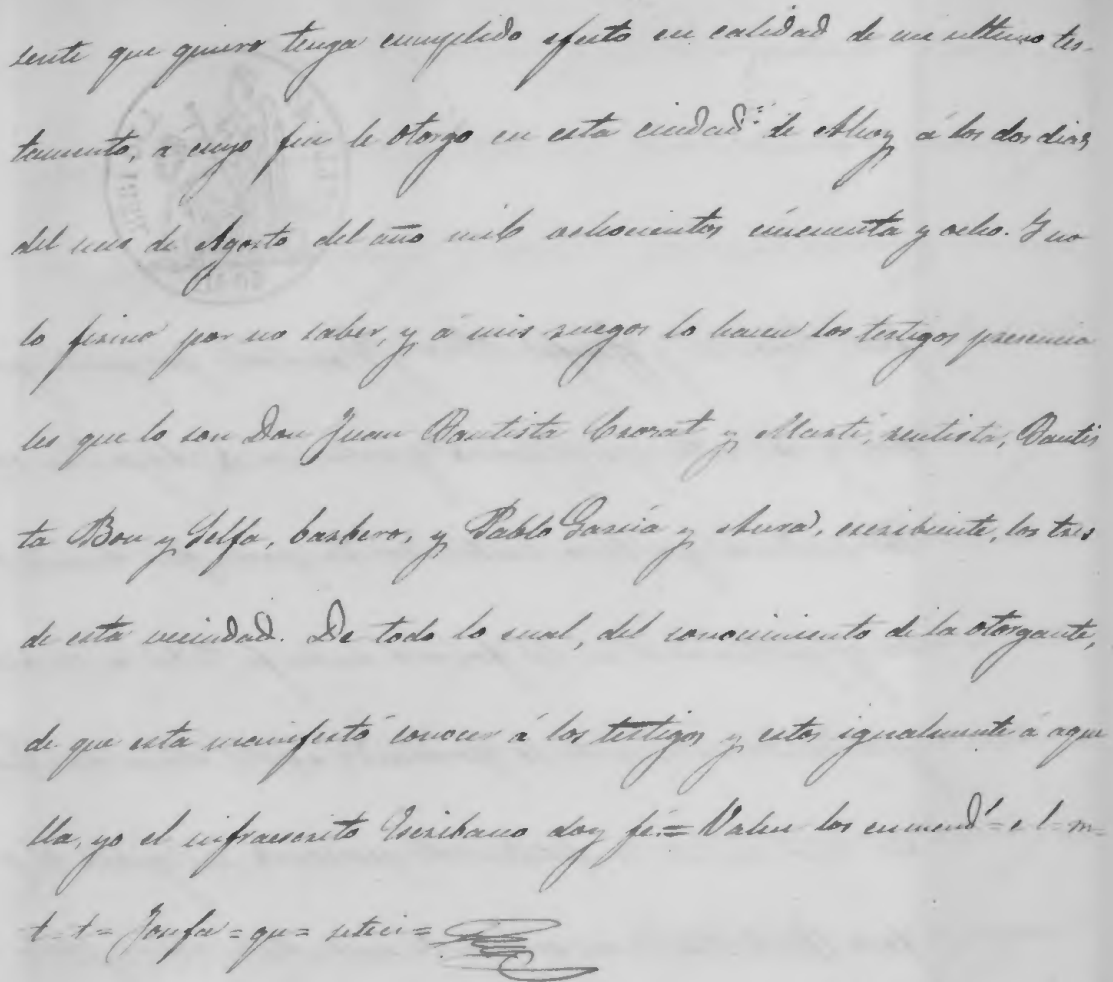 sente que quiero tenga cumplido efecto en calidad de mi ultimo tes-
tamento, a cuyo fin le otorgo en esta ciudad de Alcoy á los dos dias
del mes de Agosto del año mil ochocientos cincuenta y ocho. Y no
lo firmo por no saber, y á mis ruegos lo hacen los testigos presencia
les que lo son Don Juan Bautista y Marti, rentista, Bautis
ta Bou y Selfa, barbero, y Pablo Garcia y Aura, escribiente, los tres
de esta vecindad. De todo lo cual, del conocimiento de la otorgante,
de que esta manifestó conocer á los testigos y estos igualmente á aque
lla, yo el infraescrito Escribano doy fé.= Valen los enmend.s = el = m=
t = t = Josefa = que =